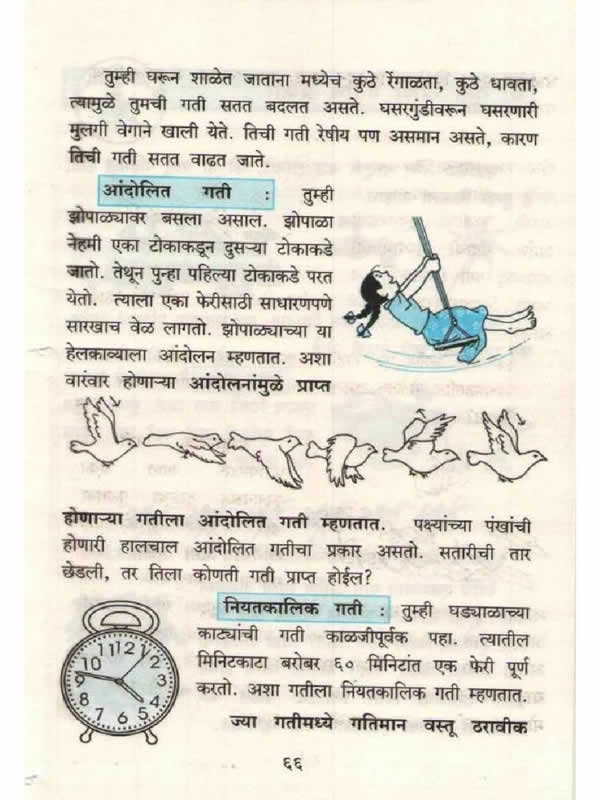 तुम्ही घरून शाळेत जाताना मध्येच कुठे रेंगाळता, कुठे धावता,
त्यामुळे तुमची गती सतत बदलत असते. घसरगुंडीवरून घसरणारी
मुलगी वेगाने खाली येते. तिची गती रेषीय पण असमान असते, कारण
तिची गती सतत वाढत जाते.
आंदोलित गती : तुम्ही
झोपाळ्यावर बसला असाल. झोपाळा
नेहमी एका टोकाकडून दुसऱ्या टोकाकडे
जातो. तेथून पुन्हा पहिल्या टोकाकडे परत
येतो. त्याला एका फेरीसाठी साधारणपणे
सारखाच वेळ लागतो. झोपाळ्याच्या या
हेलकाव्याला आंदोलन म्हणतात. अशा
वारंवार होणाऱ्या आंदोलनांमुळे प्राप्त
होणाऱ्या गतीला आंदोलित गती म्हणतात. पक्ष्यांच्या पंखांची
होणारी हालचाल आंदोलित गतीचा प्रकार असतो. सतारीची तार
छेडली, तर तिला कोणती गती प्राप्त होईल?
नियतकालिक गती : तुम्ही घड्याळाच्या
काट्यांची गती काळजीपूर्वक पहा. त्यातील
मिनिटकाटा बरोबर ६० मिनिटांत एक फेरी पूर्ण
करतो. अशा गतीला नियतकालिक गती म्हणतात.
ज्या गतीमध्ये गतिमान वस्तू ठरावीक
12
1
2
3
4
5
6
7
8
9
10
11
६६